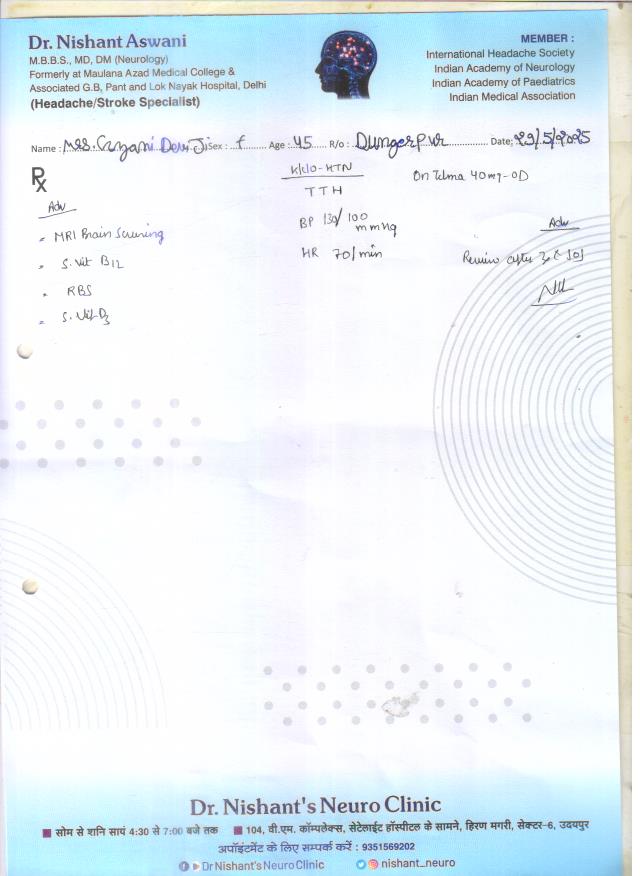 Dr. Nishant Aswani
M.B.B.S., MD, DM (Neurology)
Formerly at Maulana Azad Medical College &
Associated G.B, Pant and Lok Nayak Hospital, Delhi
(Headache/Stroke Specialist)
MEMBER :
International Headache Society
Indian Academy of Neurology
Indian Academy of Paediatrics
Indian Medical Association
Name : Mrs. Devi Ji Sex : f Age : 45 R/o : Dungerpur Date: 29/5/2025
Rx
K/c/o-HTN
TTH
On Telma 40mg-OD
BP 130/100 mmHg
HR 70/min
Adv
- MRI Brain Screening
- S. Vit B12
- RBS
- S. Vit-D3
Adv
Review after
Dr. Nishant's Neuro Clinic
सोम से शनि सायं 4:30 से 7:00 बजे तक 104, वी.एम. कॉम्पलेक्स, सेटेलाईट हॉस्पीटल के सामने, हिरण मगरी, सेक्टर-6, उदयपुर
अपॉइंटमेंट के लिए सम्पर्क करें : 9351569202
Dr Nishant's Neuro Clinic nishant_neuro